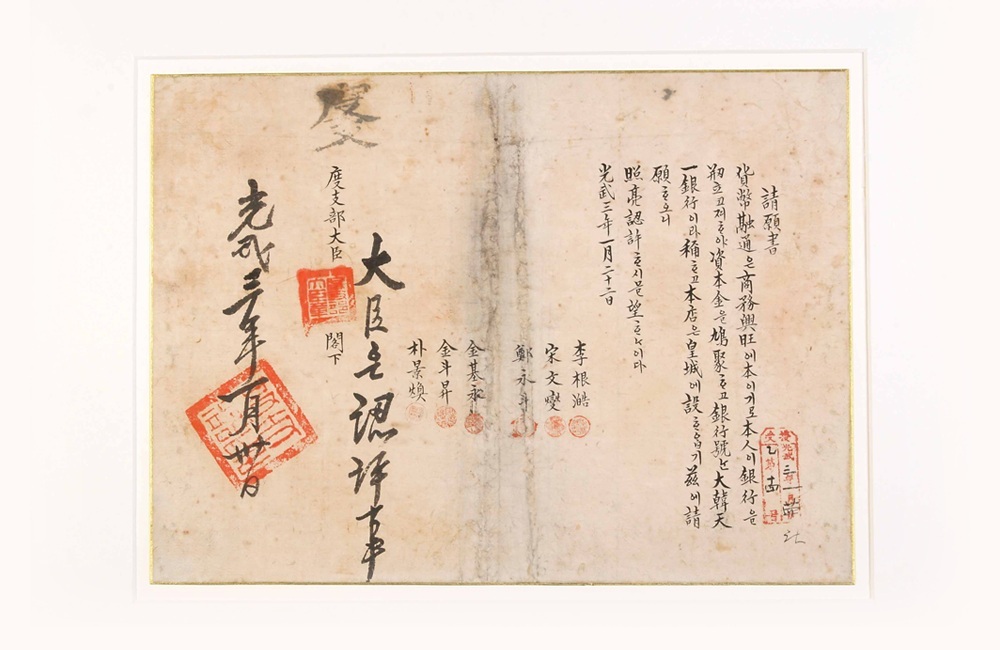 請願書
貨幣融通은商務興旺에本이기로本人이銀行을
刱立고져ᄒᆞ야資本金을鳩聚ᄒᆞ고銀行號ᄂᆞᆫ大韓天
一銀行이라稱ᄒᆞ고本店은皇城에設ᄒᆞ옵기玆에請
願ᄒᆞ오니
照亮認許ᄒᆞ시믈望ᄒᆞᄂᆞ이다
光武三年一月二十二日
李根澔
宋文燮
鄭永斗
金基永
金斗昇
朴景煥
大臣
認許事
度支部大臣
閣下
度支
光武三年一月卅日